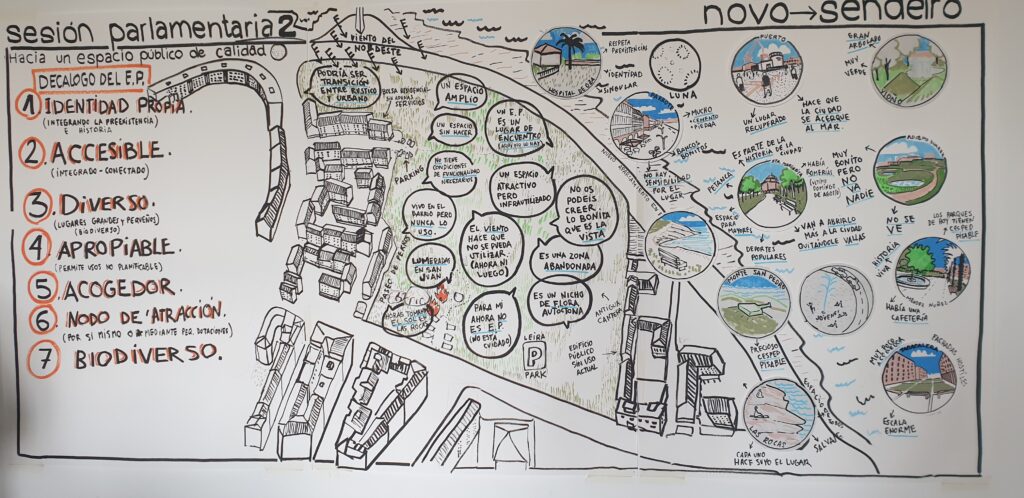 sesión parlamentaria 2
Hacia un espacio público de calidad
DECALOGO DEL E.P.
1 IDENTIDAD PROPIA.
(INTEGRANDO LA PREEXISTENCIA)
E HISTORIA
2 ACCESIBLE.
(INTEGRADO-CONECTADO)
3 DIVERSO.
(LUGARES GRANDES Y PEQUEÑOS)
(BIODIVERSO)
4 APROPIABLE.
(PERMITE USOS NO PLANIFICABLE)
5 ACOGEDOR.
6 NODO DE ATRACCIÓN.
(POR SI MISMO O MEDIANTE PEQ. DOTACIONES)
7 BIODIVERSO.
VIENTO DEL
NORDESTE
PODRÍA SER
TRANSICIÓN
ENTRE RÚSTICO
Y URBANO
BOLSA RESIDENCIAL
SIN APENAS
SERVICIOS
UN ESPACIO
AMPLIO
UN ESPACIO
SIN HACER
UN E.P.
ES UN
LUGAR DE
ENCUENTRO
PARKING
NO TIENE
CONDICIONES
DE FUNCIONALIDAD
NECESARIOS
UN ESPACIO
ATRACTIVO
PERO
INFRAUTILIZADO
VIVO EN EL
BARRIO PERO
NUNCA LO
USO.
NO OS
PODÉIS
CREER LO
LO BONITA
QUE ES LA
VISTA
EL VIENTO
HACE QUE
NO SE PUEDA
UTILIZAR
(AHORA NI
LUEGO)
PASEO DE PERROS
LUMERADAS
EN SAN
JUAN
ES UNA ZONA
ABANDONADA
HORAS TOMANDO
EL SOL EN
LAS ROCAS
PARA MI
AHORA NO
ES E.P.
(NO ESTÁ
CUIDADO)
ES UN NICHO
DE FLORA
AUTOCTONA
ANTIGUA
CANTERA
LEIRA
P
PARK
EDIFICIO
PÚBLICO
SIN USO
ACTUAL
novo→sendeiro
RESPETA
PREEXISTENCIAS
IDENTIDAD
SINGULAR
LUNA
MUCHO
CEMENTO
+ PIEDRA
BANCOS
BONITOS
NO HAY
SENSIBILIDAD
POR EL
LUGAR
PUERTO
UN LUGAR
RECUPERADO
HACE QUE
LA CIUDAD
SE ACERQUE
AL MAR.
GRAN
ARBOLADO
MUY
VERDE
ES PARTE DE LA
HISTORIA DE LA CIUDAD
PETANCA
ESPACIO
PARA
MAYORES
DEPORTES
POPULARES
HABÍA
ROMERÍAS
DOMINGO
DE AGOSTO
VAN A ABRIRLO
MAS A LA CIUDAD
QUITÁNDOLE VALLAS
MUY
BONITO
PERO
NO
VA
NADIE
NO SE
VE
LOS PARQUES
DE HOY TIENEN
CESPED
PISABLE
HISTORIA
VIVA
HABÍA UNA
CAFETERÍA
MONTE SAN PEDRO
PRECIOSO
CESPED
PISABLE
LAS ROCAS
SALVAJE
CADA UNO
HACE SUYO EL LUGAR
ESCALA
ENORME